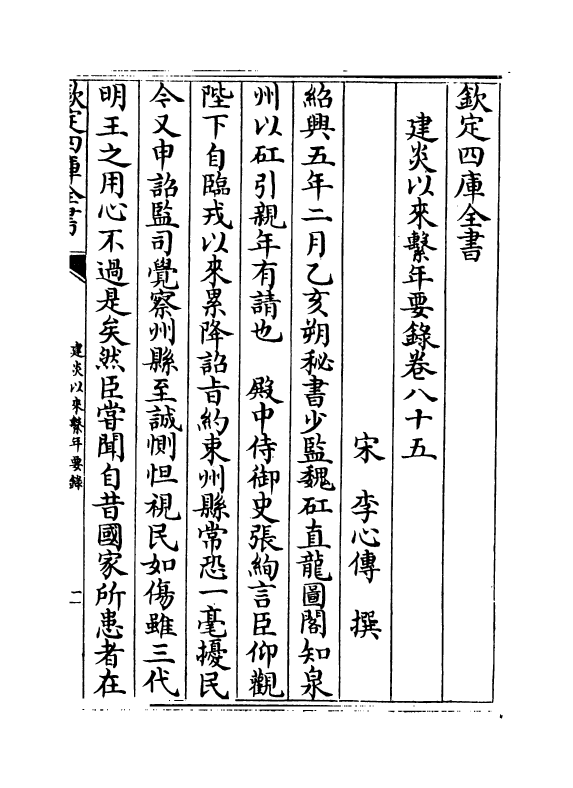 欽定四庫全書
建炎以來繫年要錄卷八十五
宋 李心傳 撰
紹興五年二月乙亥朔秘書少監魏矼直龍圖閣知泉
州以矼引親年有請也 殿中侍御史張絢言臣仰觀
陛下自臨戎以來累降詔㫖約束州縣常恐一毫擾民
令又申詔監司覺察州縣至誠惻怛視民如傷雖三代
明王之用心不過是矣然臣甞聞自昔國家所患者在
欽定四庫全書
建炎以來繫年要錄